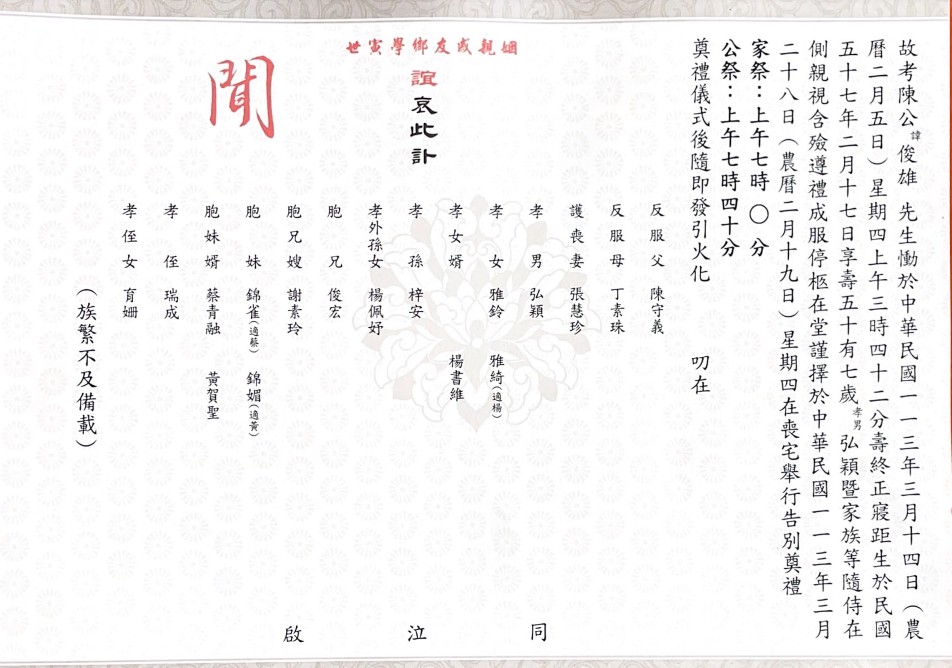 故考陳公諱俊雄 先生慟於中華民國一一三年三月十四日（農
曆二月五日）星期四上午三時四十二分壽終正寢距生於民國
五十七年二月十七日享壽五十有七歲孝男弘穎暨家族等隨侍在
側親視含殮遵禮成服停柩在堂謹擇於中華民國一一三年三月
二十八日（農曆二月十九日）星期四在喪宅舉行告別奠禮
家祭：上午七時〇分
公祭：上午七時四十分
奠禮儀式後隨即發引火化 叨在
姻親戚友鄉學寅世
誼哀此訃
聞
反服父 陳守義
反服母 丁素珠
護喪妻 張慧珍
孝男 弘穎
孝女 雅鈴 雅綺（適楊）
孝女婿 楊書維
孝孫 梓安
孝外孫女 楊佩妤
胞兄 俊宏
胞兄嫂 謝素玲
胞妹 錦雀（適蔡） 錦媚（適黃）
胞妹婿 蔡青融 黃賀聖
孝侄 瑞成
孝侄女 育姍
（族繁不及備載）
同 泣 啟